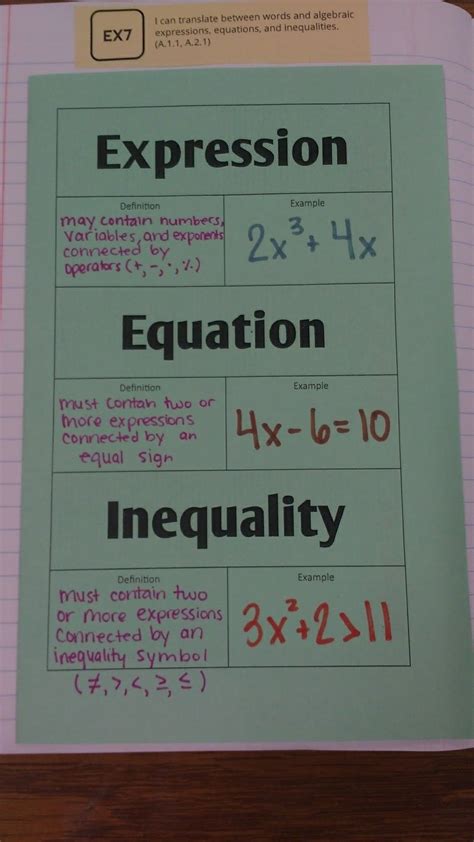 EX7
I can translate between words and algebraic
expressions, equations, and inequalities.
(A.1.1, A.2.1)
Expression
Definition
may contain numbers,
variables, and exponents
connected by
operators (+, -, ·, ⁒)
Example
2x³+ 4x
Equation
Definition
must contain two or
more expressions
connected by an
equal sign
Example
4x-6=10
Inequality
Definition
must contain two
or more expressions
connected by an
inequality symbol
(≠, >, <, ≥, ≤)
Example
3x²+2>11